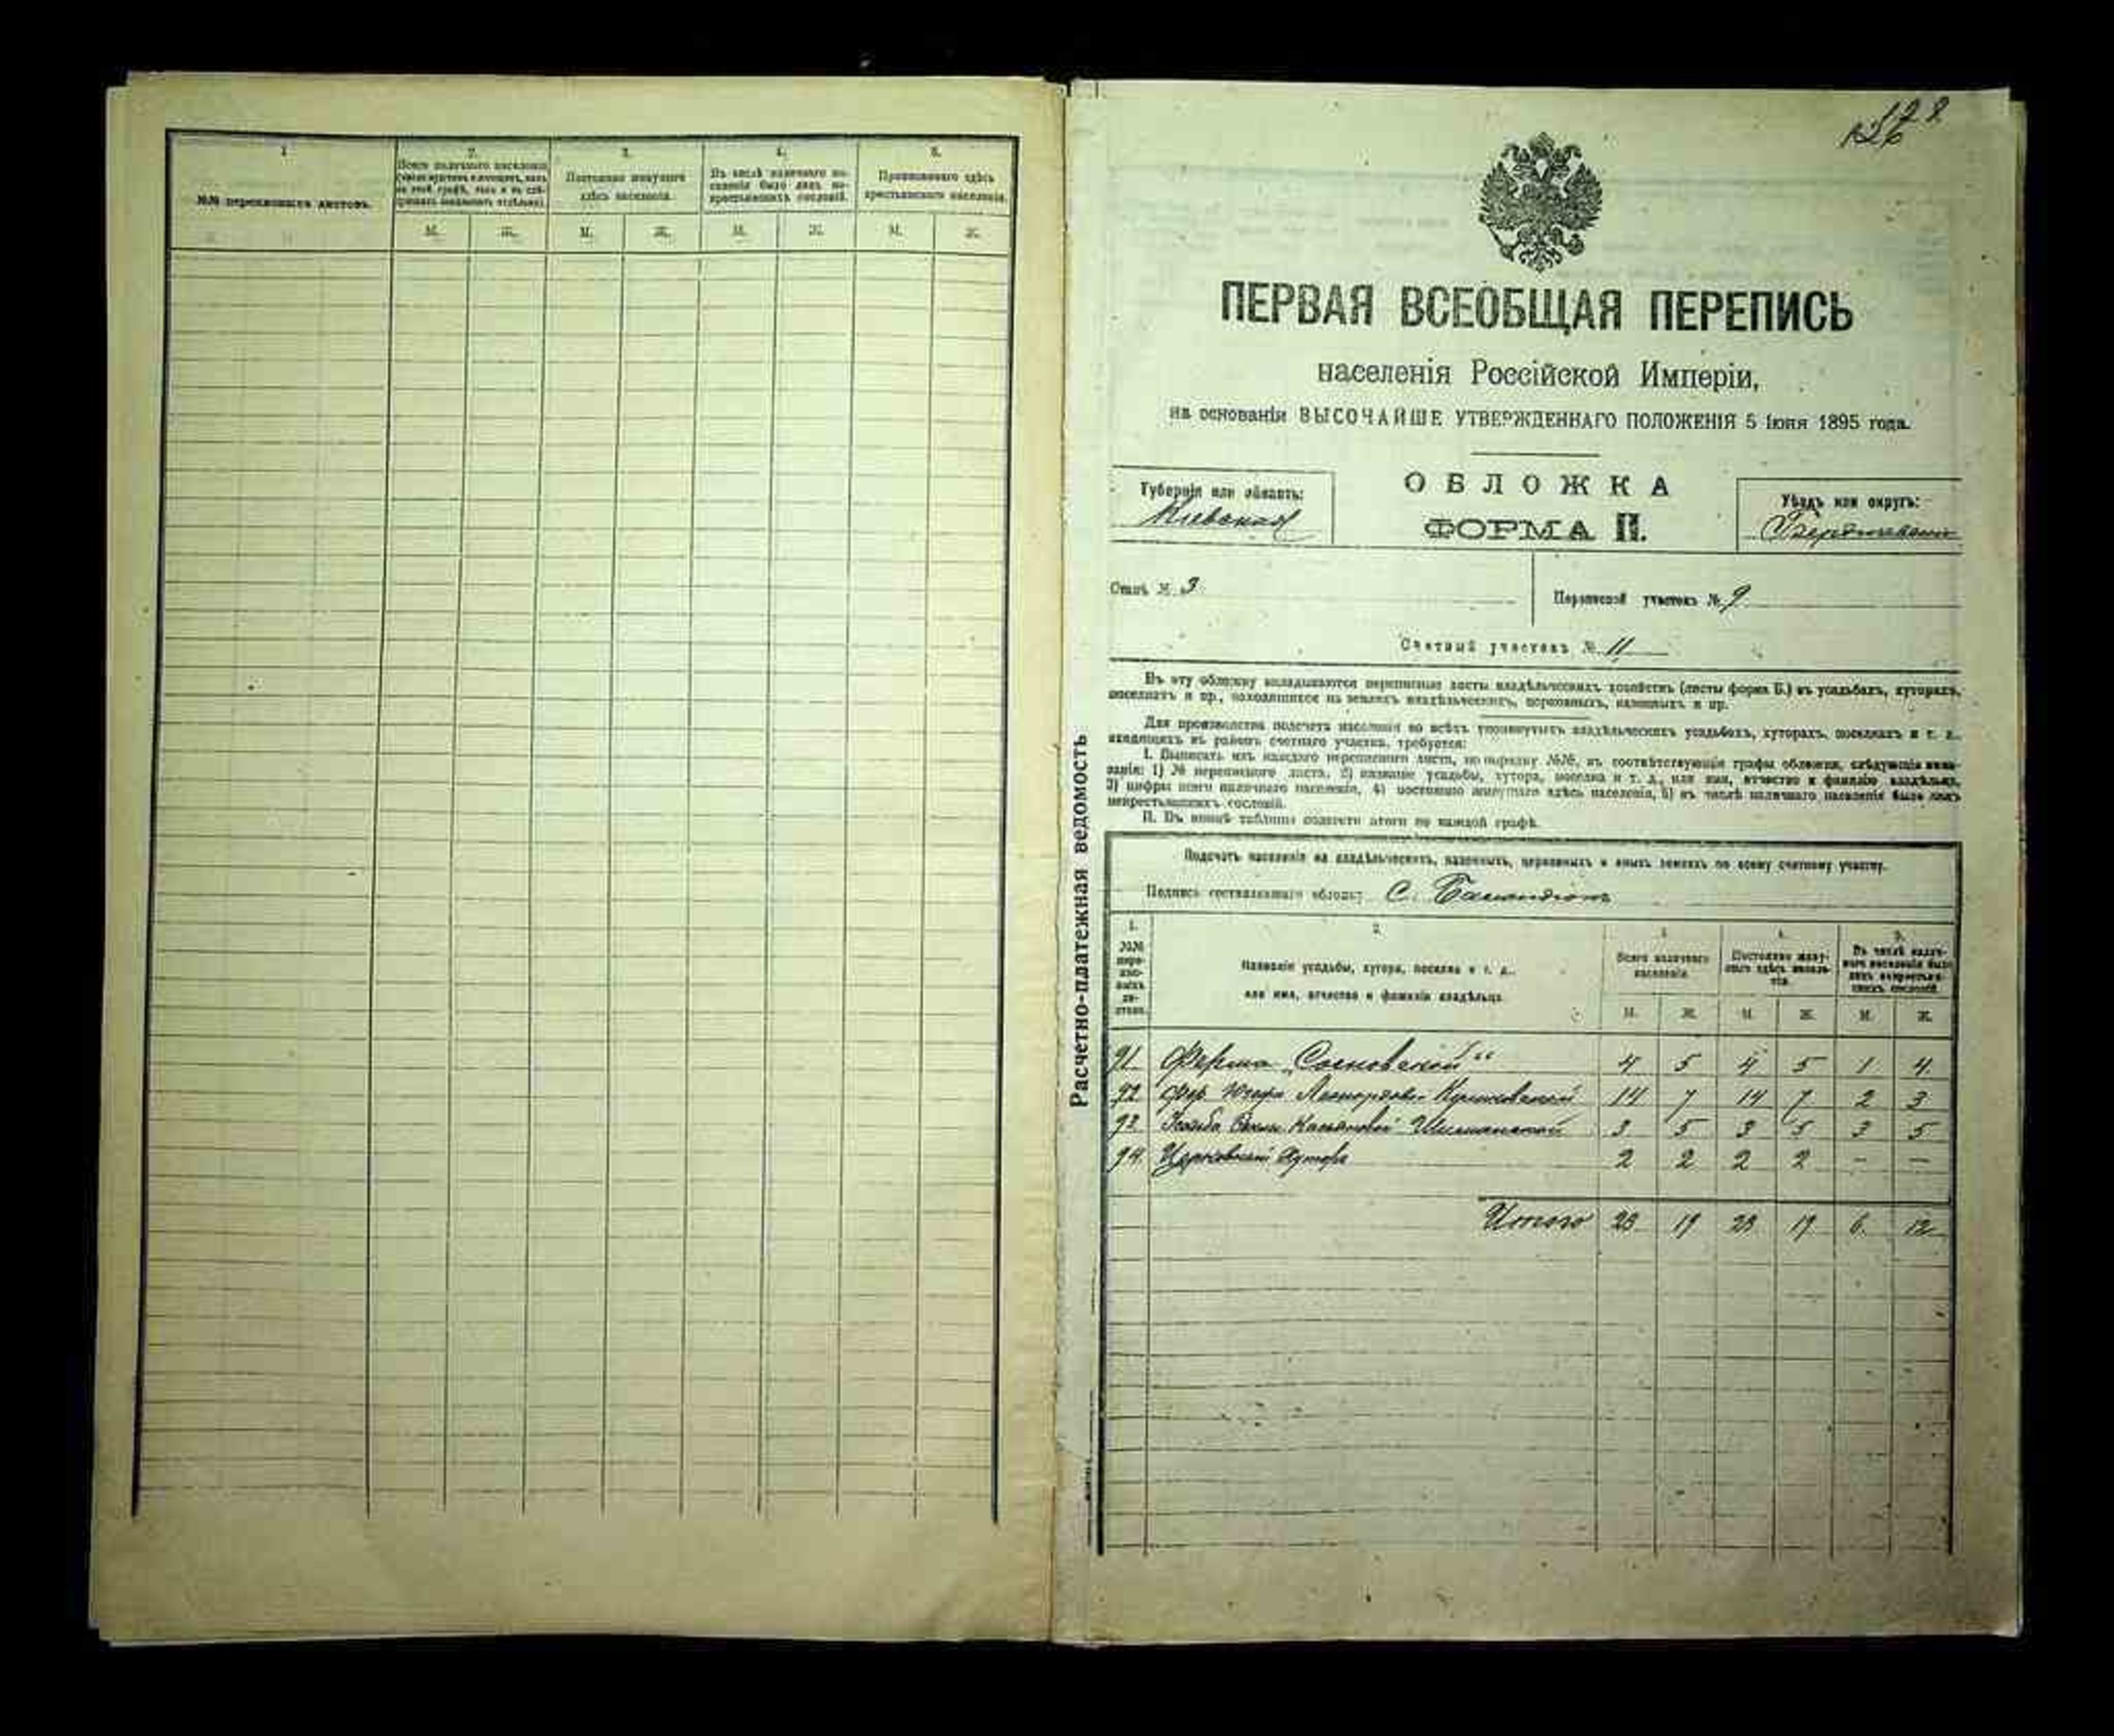 1
№№ переписныхъ листовъ.
2.
Всего наличнаго населенія
3.
Постоянно живущаго
здѣсь населенія.
4.
Въ числѣ наличнаго на-
селенія было лицъ не-
крестьянскихъ сословій.
5.
Приписаннаго здѣсь
крестьянскаго населенія.
М. Ж. М. Ж. М. Ж. М. Ж.
Расчетно-платежная ведомость
ПЕРВАЯ ВСЕОБЩАЯ ПЕРЕПИСЬ
населенія Россійской Имперіи,
на основаніи ВЫСОЧАЙШЕ УТВЕРЖДЕННАГО ПОЛОЖЕНІЯ 5 іюня 1895 года.
Губернія или область:
Киевская
ОБЛОЖКА
ФОРМА II.
Уѣздъ или округъ:
Бердичевскій
Станъ № 3
Переписной участокъ № 9
Счетный участокъ № 11
Въ эту обложку вкладываются переписные листы владѣльческихъ хозяйствъ (листы форма Б.) въ усадьбахъ, хуторахъ,
поселкахъ и пр., находящихся на земляхъ владѣльческихъ, церковныхъ, казенныхъ и пр.
Для производства подсчета населенія во всѣхъ упомянутыхъ владѣльческихъ усадьбахъ, хуторахъ, поселкахъ и т. д.,
входящихъ въ районъ счетнаго участка, требуется:
I. Выписать изъ каждаго переписного листа, по порядку №№, въ соотвѣтствующія графы обложки, слѣдующія
1) № переписного листа, 2) названіе усадьбы, хутора, поселка и т. д., или имя, отчество и фамилію владѣльца,
3) цифры всего наличнаго населенія, 4) постоянно живущаго здѣсь населенія, 5) въ числѣ наличнаго населенія было лицъ
некрестьянскихъ сословій.
II. Въ концѣ таблицы подвести итоги по каждой графѣ.
Подсчетъ населенія на владѣльческихъ, казенныхъ, церковныхъ и иныхъ земляхъ по всему счетному участку.
Подпись составлявшаго обложку С.
1.
№№ пере-
пис-
ныхъ
ли-
стовъ.
2.
Названіе усадьбы, хутора, поселка и т. д.,
или имя, отчество и фамилія владѣльца
3.
Всего наличнаго
населенія.
4.
Постоянно живу-
щаго здѣсь населе-
нія.
5.
Въ числѣ налич-
наго населенія было
лицъ некрестьян-
скихъ сословій.
М. Ж. М. Ж. М. Ж.
91. Ферма „Сосновская“ 4 5 4 5 1 4
92. Фер. 14 7 14 7 2 3
93. Усадьба 3 5 3 5 3 5
94. Церковный Хуторъ 2 2 2 2 — —
Итого 23 19 23 19 6 12